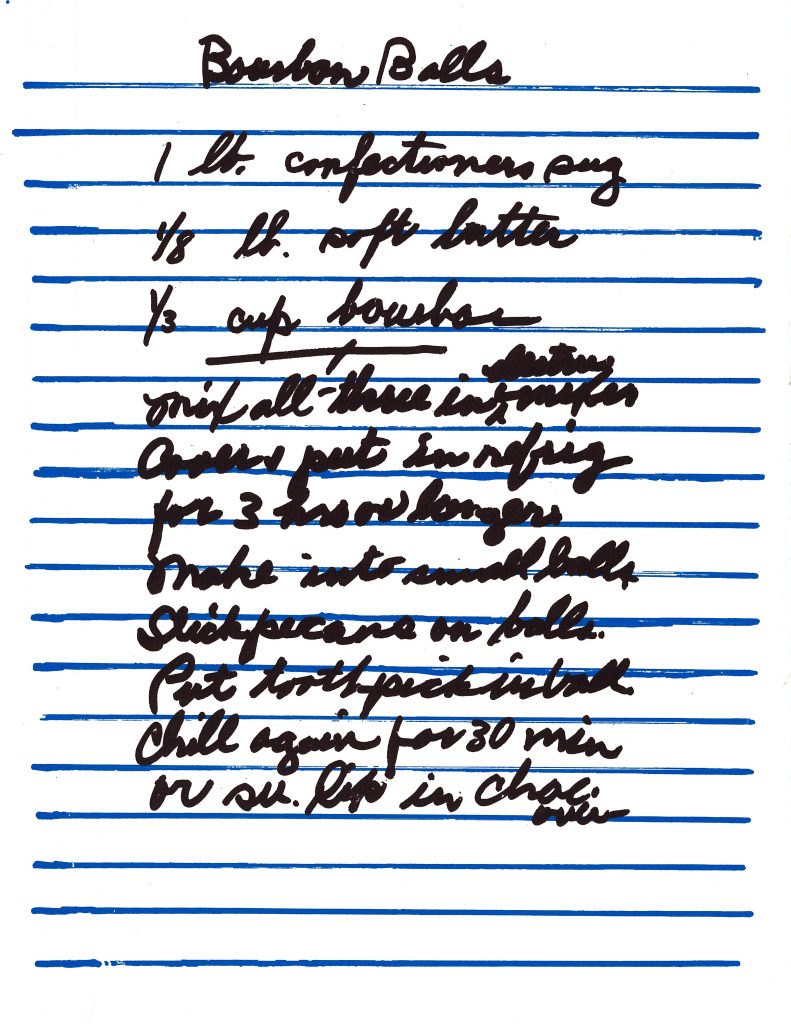 Bourbon Balls
1 lb. confectioners sug
1/8 lb. soft butter
1/3 cup bourbon
mix all three in electric mixer
Cover & put in refrig
for 3 hrs or longer.
Make into small balls.
Stick pecans on balls.
Put toothpick in ball.
Chill again for 30 min
or so. Dip in choc.
over